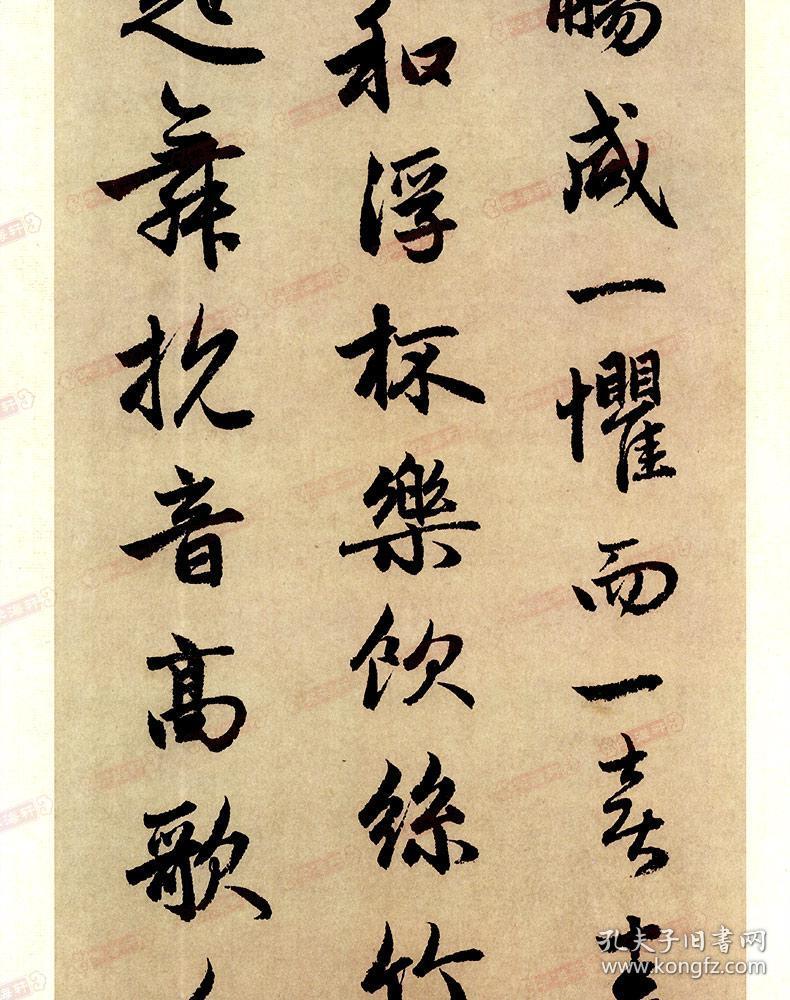 觴咸一懼而一喜壽
和浮杯樂飲絲竹
起舞抗音高歌人
孔夫子旧书网
www.kongfz.com